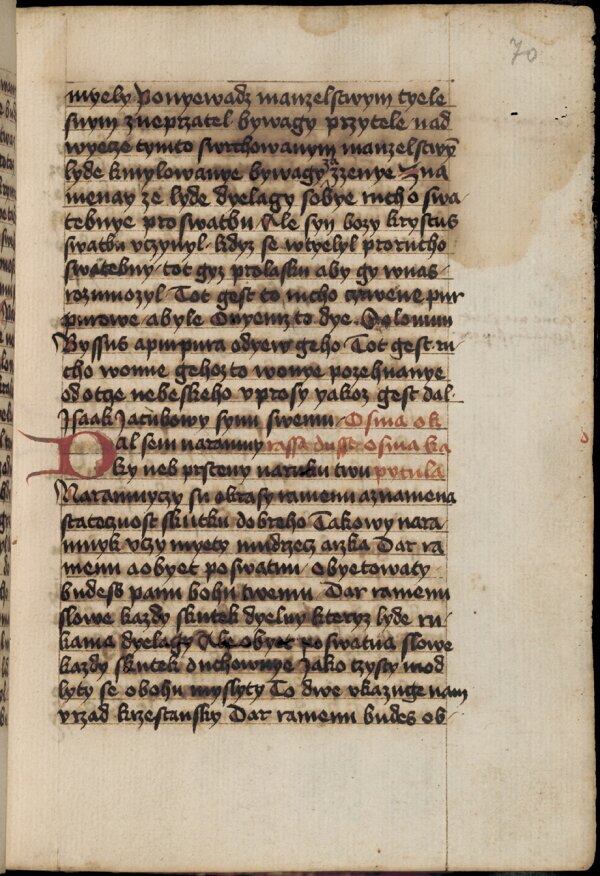 70
myely Ponyewadz manzelstwym tyele
swym zneprzatel bywagy przytele nad
wyecze tymto swrchowanym manzelstwȳ
lyde kmylowanye bywagy zazzenye Zna
menay ze lyde dyelagy sobye rucho swa
tebnye proswatbu Ale syn bozy krystus
swatbu vczynyl kdyz se wtyelyl prorucho
swatebny tot gyz prolasku aby gy wnas
rozmnozyl Tot gest to rucho czrwene pur
purowe abyle Onyemz to dye Ssolomun
Byssus apurpura odyew geho Tot gest ru
cho wonne gehozto wonye pozehnanye
od otcze nebeskeho vprosy yakoz gest dal
Jsaak Jacubowy synu swemu Osma ok
Dal sem naramny rassa dusse osma ka
ky neb prsteny naruku twu pytula
Naramnyczy su okrasy ramenu aznamena
statecznost skutku dobreho Takowy nara
mnyk vczy myety mudrzecz arzka Dar ra
menu aobyet poswatnu Obyetowaty
budess panu bohu twemu Dar ramenu
slowe kazdy skutek dyelny kteryz lyde ru
kama dyelagy Ale obyet poswatna slowe
kazdy skutek duchownye Jako czysty mod
lyty se obohu myslyty To dwe vkazuge nam
vrzad krzestansky Dar ramenu budes ob